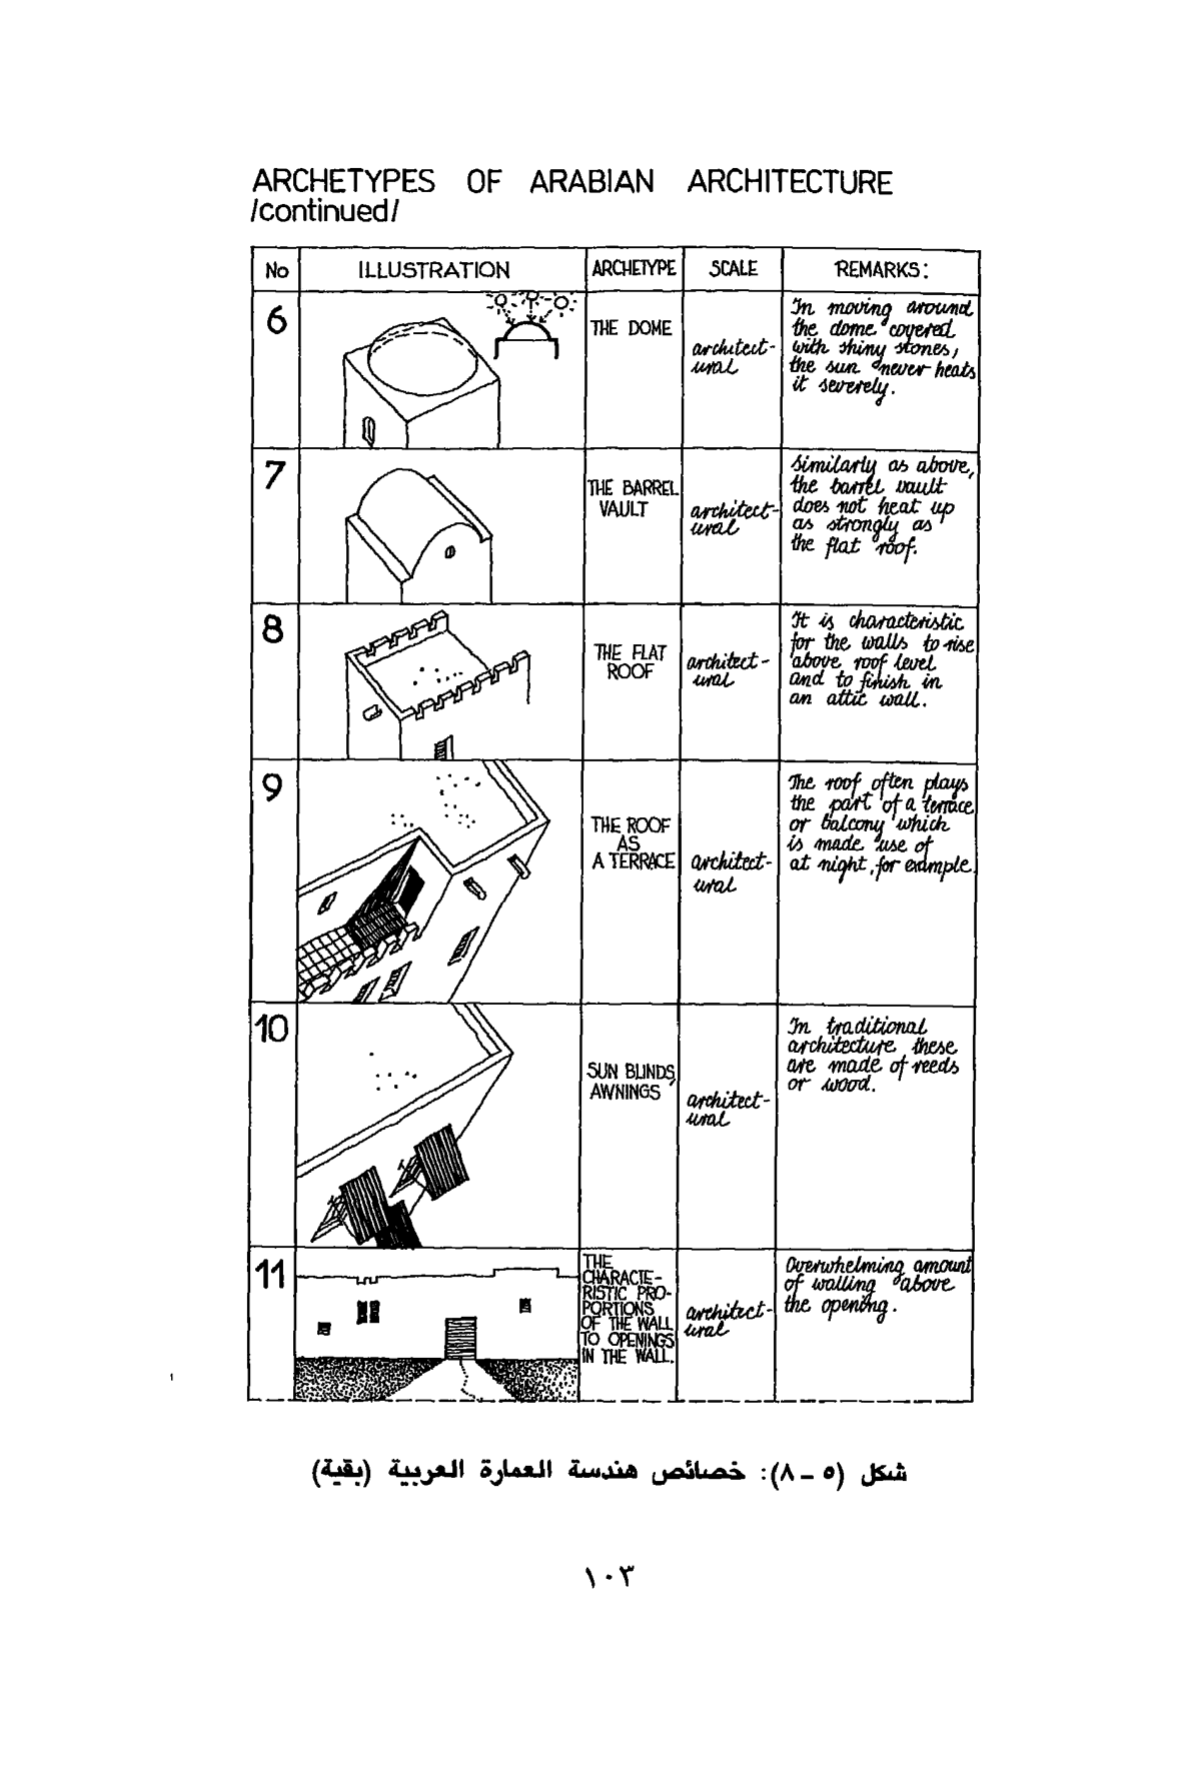 ARCHETYPES OF ARABIAN ARCHITECTURE
/continued/
No ILLUSTRATION ARCHETYPE SCALE REMARKS:
6
THE DOME
architect-
ural
In moving around
the dome covered
with shiny stones,
the sun never heats
it severely.
7
THE BARREL
VAULT
architect-
ural
Similarly as above,
the barrel vault
does not heat up
as strongly as
the flat roof.
8
THE FLAT
ROOF
architect-
ural
It is characteristic
for the walls to rise
above roof level
and to finish in
an attic wall.
9
THE ROOF
AS
A TERRACE
architect-
ural
The roof often plays
the part of a terrace
or balcony which
is made use of
at night, for example.
10
SUN BLINDS,
AWNINGS
architect-
ural
In traditional
architecture these
are made of reeds
or wood.
11
THE
CHARACTE-
RISTIC PRO-
PORTIONS
OF THE WALL
TO OPENINGS
IN THE WALL.
architect-
ural
Overwhelming amount
of walling above
the opening.
شكل (٥ - ٨): خصائص هندسة العمارة العربية (بقية)
١٠٣